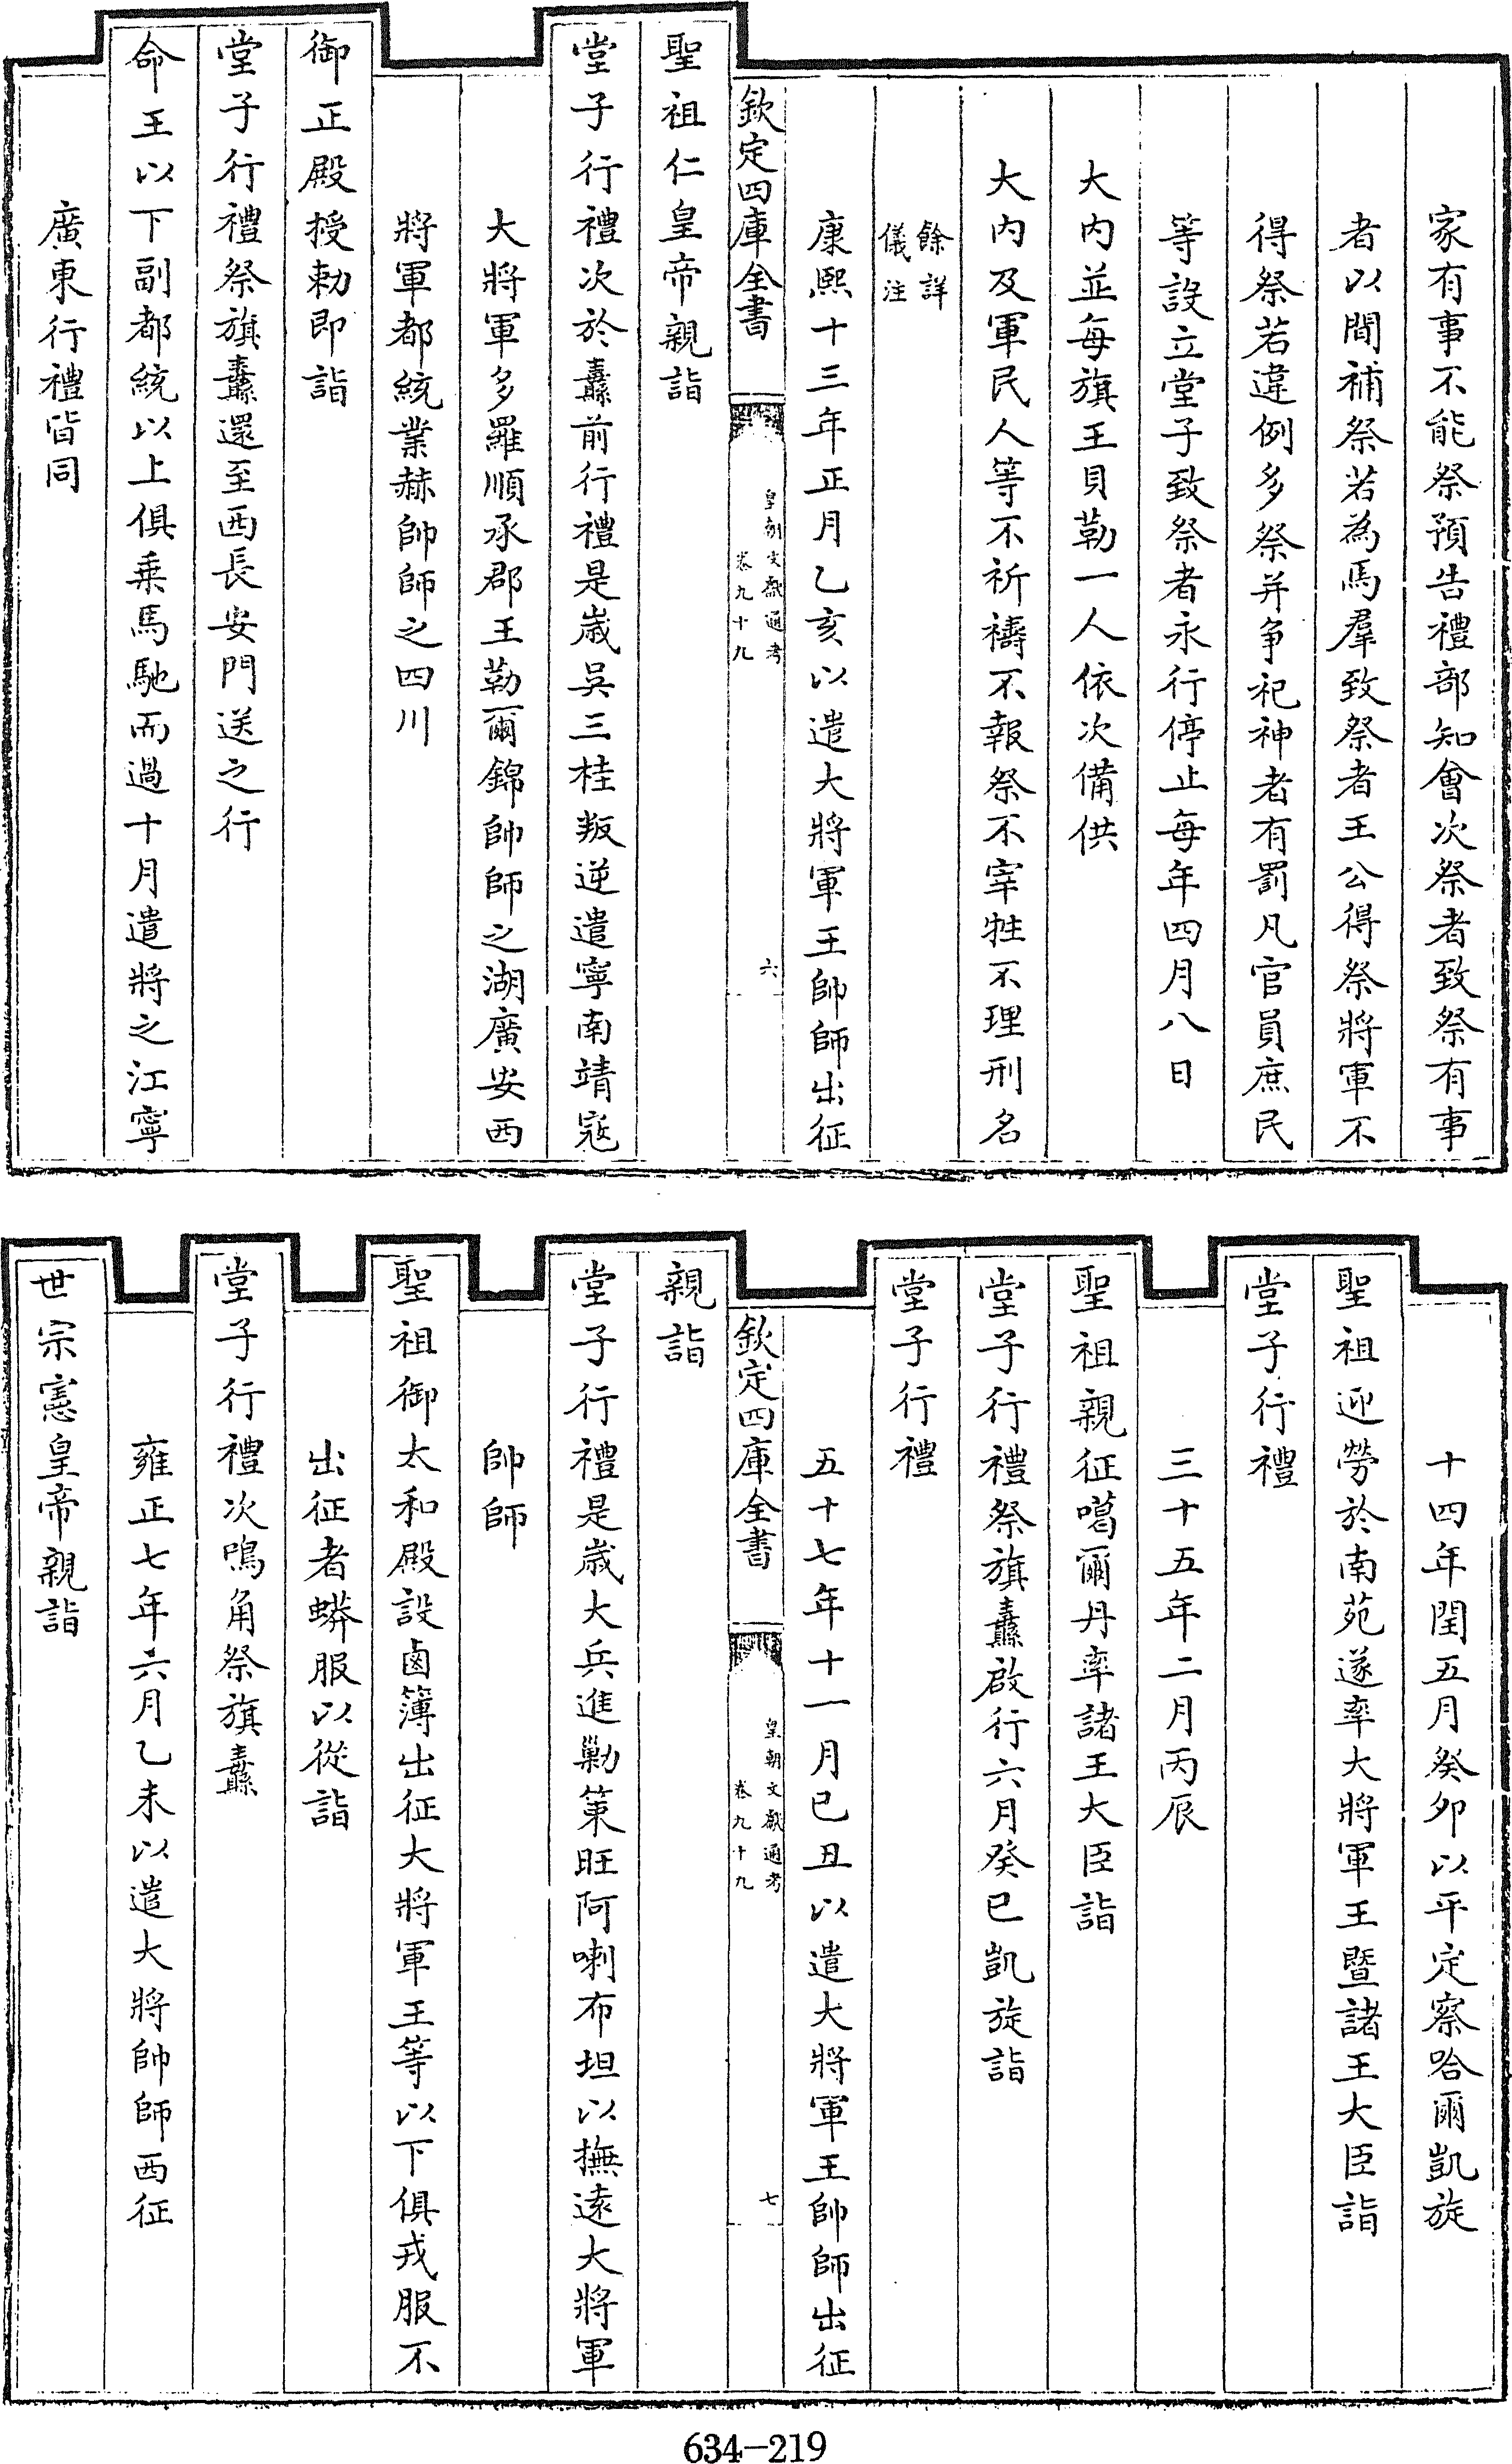 家有事不能祭預告禮部知會次祭者致祭有事
者以間補祭若為馬羣致祭者王公得祭將軍不
得祭若違例多祭并争祀神者有罰凡官員庶民
等設立堂子致祭者永行停止每年四月八日
大内並每旗王貝勒一人依次備供
大内及軍民人等不祈禱不報祭不宰牲不理刑名
餘詳
儀注
康熙十三年正月乙亥以遣大將軍王帥師出征
欽定四庫全書
皇朝文獻通考
卷九十九
六
聖祖仁皇帝親詣
堂子行禮次於纛前行禮是歲吳三桂叛逆遣寧南靖寇
大將軍多羅順承郡王勒爾錦帥師之湖廣安西
將軍都統業赫帥師之四川
御正殿授勅即詣
堂子行禮祭旗纛還至西長安門送之行
命王以下副都統以上俱乗馬馳而過十月遣將之江寧
廣東行禮皆同
十四年閏五月癸卯以平定察哈爾凱旋
聖祖迎勞於南苑遂率大將軍王暨諸王大臣詣
堂子行禮
三十五年二月丙辰
聖祖親征噶爾丹率諸王大臣詣
堂子行禮祭旗纛啟行六月癸巳凱旋詣
堂子行禮
五十七年十一月已丑以遣大將軍王帥師出征
欽定四庫全書
皇朝文獻通考
卷九十九
七
親詣
堂子行禮是歲大兵進勦策旺阿喇布坦以撫遠大將軍
帥師
聖祖御太和殿設鹵簿出征大將軍王等以下俱戎服不
出征者蟒服以從詣
堂子行禮次鳴角祭旗纛
雍正七年六月乙未以遣大將帥師西征
世宗憲皇帝親詣
634-219